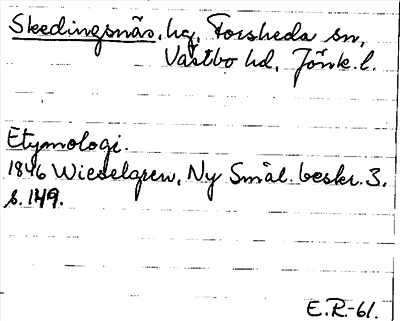 Skedingsnäs, hg, Forsheda sn,
Västbo hd, Jönk. l.
Etymologi.
1846 Wieselgren, Ny Smål. beskr. 3.
s. 149.
E.R.-61.